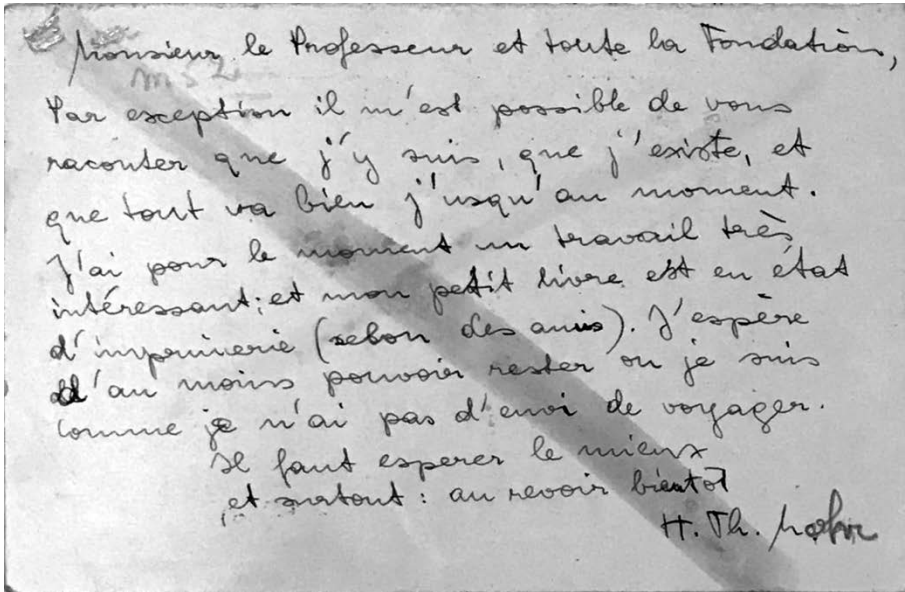 Monsieur le Professeur et toute la Fondation,
Par exception il m'est possible de vous
raconter que j'y suis, que j'existe, et
que tout va bien j'usqu'au moment.
J'ai pour le moment un travail très
intéressant; et mon petit livre est en état
d'imprimerie (selon des amis). J'espère
d'au moins pouvoir rester ou je suis
comme je n'ai pas d'envi de voyager.
Il faut esperer le mieux
et surtout: au revoir bientôt
H. Th.